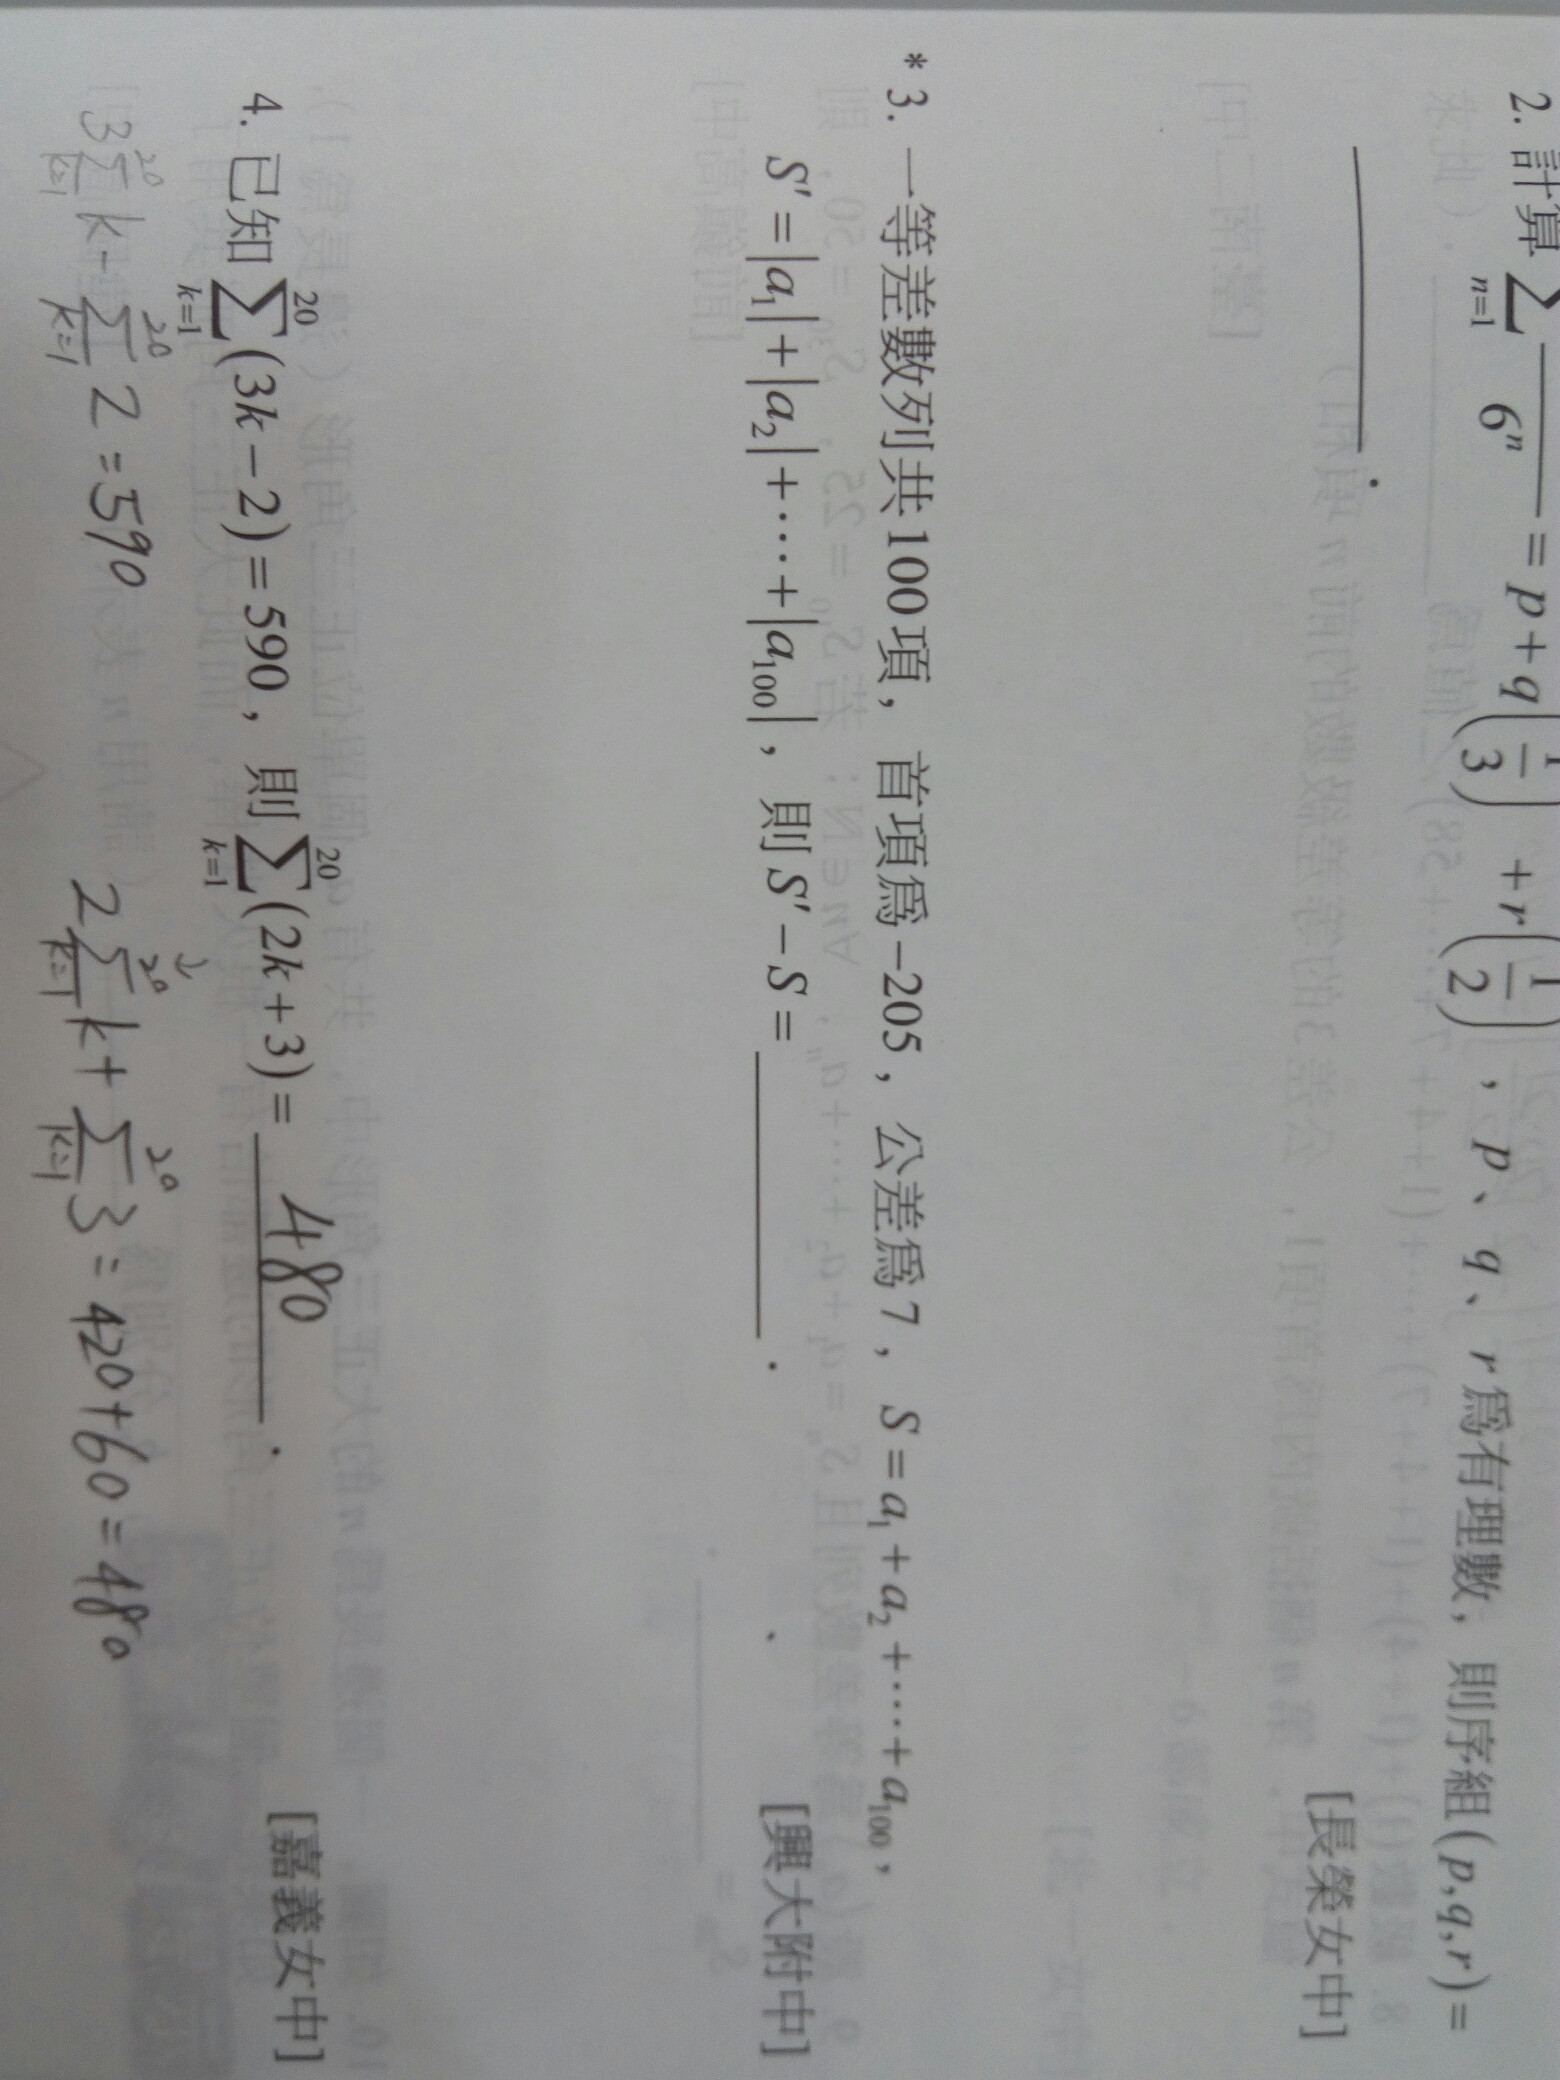 2. 計算 ∑ n=1 6ⁿ = p + q(1/3) + r(1/2) , p、q、r 為有理數, 則序組 (p,q,r) =
______ .
[長榮女中]
* 3. 一等差數列共100項, 首項為 –205, 公差為 7, S = a₁ + a₂ + ⋯ + a₁₀₀,
S′ = |a₁| + |a₂| + ⋯ + |a₁₀₀|, 則 S′ – S = ______ .
[興大附中]
4. 已知 ∑_{k=1}^{20} (3k – 2) = 590, 則 ∑_{k=1}^{20} (2k + 3) = 480 .
[嘉義女中]
3∑_{k=1}^{20} k - ∑_{k=1}^{20} 2 = 590
2∑_{k=1}^{20} k + ∑_{k=1}^{20} 3 = 420 + 60 = 480